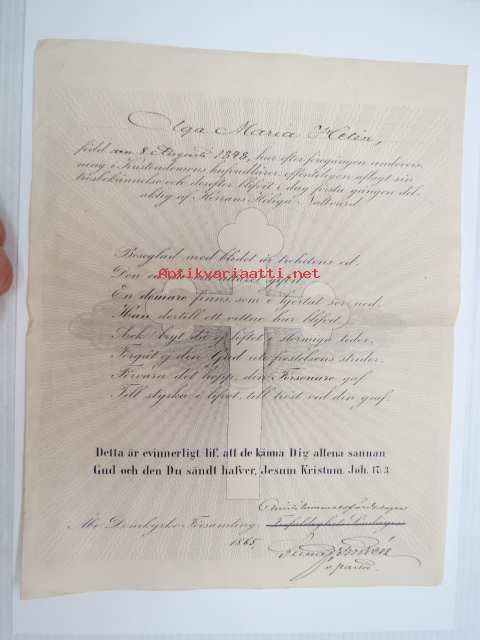 Olga Maria Helin,
född den 8 Augusti 1848, har efter föregången undervis-
ning i Kristendomens hufvudläror, offentligen aflagt sin
trosbekännelse och derefter blifvit i dag första gången del-
aktig af Herrans Heliga Nattvard.
Beseglad med blodet är trohetens ed,
Den
En domare finns, som i hjertat ser ned,
Han dertill ett vittne har blifvit.
Ack! bryt det ej löftet i stormiga tider,
Förgät ej din Gud uti frestelsens strider,
Förvara det hopp, din Försonare gaf
Till styrka i lifvet, till tröst vid din graf.
Antikvariaatti.net
Detta är evinnerligt lif, att de känna Dig allena sannan
Gud och den Du sändt hafver, Jesum Kristum. Joh. 17: 3.
Christi himmelsfärdsdagen
Åbo Domkyrko Församling,
1865,